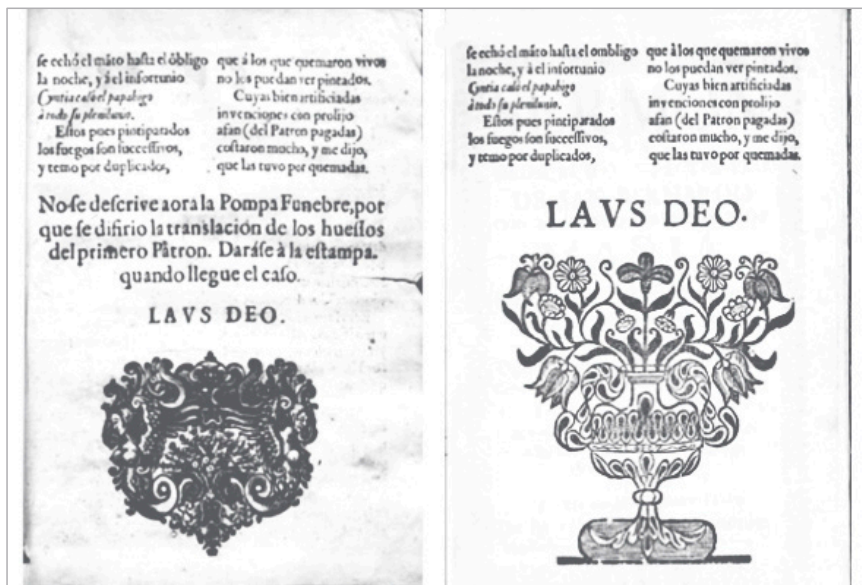 ſe echó el máto haſta el óbligo
la noche, y à el infortunio
Cyntia caló el papahigo
à todo ſu plenilunio.
Eſtos pues pintiparados
los fuegos ſon ſucceſſivos,
y temo por duplicados,
que à los que quemaron vivos
no los puedan ver pintados.
Cuyas bien artificiadas
invenciones con prolijo
afan (del Patron pagadas)
coſtaron mucho, y me dijo,
que las tuvo por quemadas.
No ſe deſcrive aora la Pompa Funebre, por
que ſe difirio la translación de los hueſſos
del primero Pátron. Daráſe à la eſtampa.
quando llegue el caſo.
LAVS DEO.
ſe echó el máto haſta el ombligo
la noche, y à el infortunio
Cyntia caló el papahigo
à todo ſu plenilunio.
Eſtos pues pintiparados
los fuegos ſon ſucceſſivos,
y temo por duplicados,
que à los que quemaron vivos
no los puedan ver pintados.
Cuyas bien artificiadas
invenciones con prolijo
afan (del Patron pagadas)
coſtaron mucho, y me dijo,
que las tuvo por quemadas.
LAVS DEO.